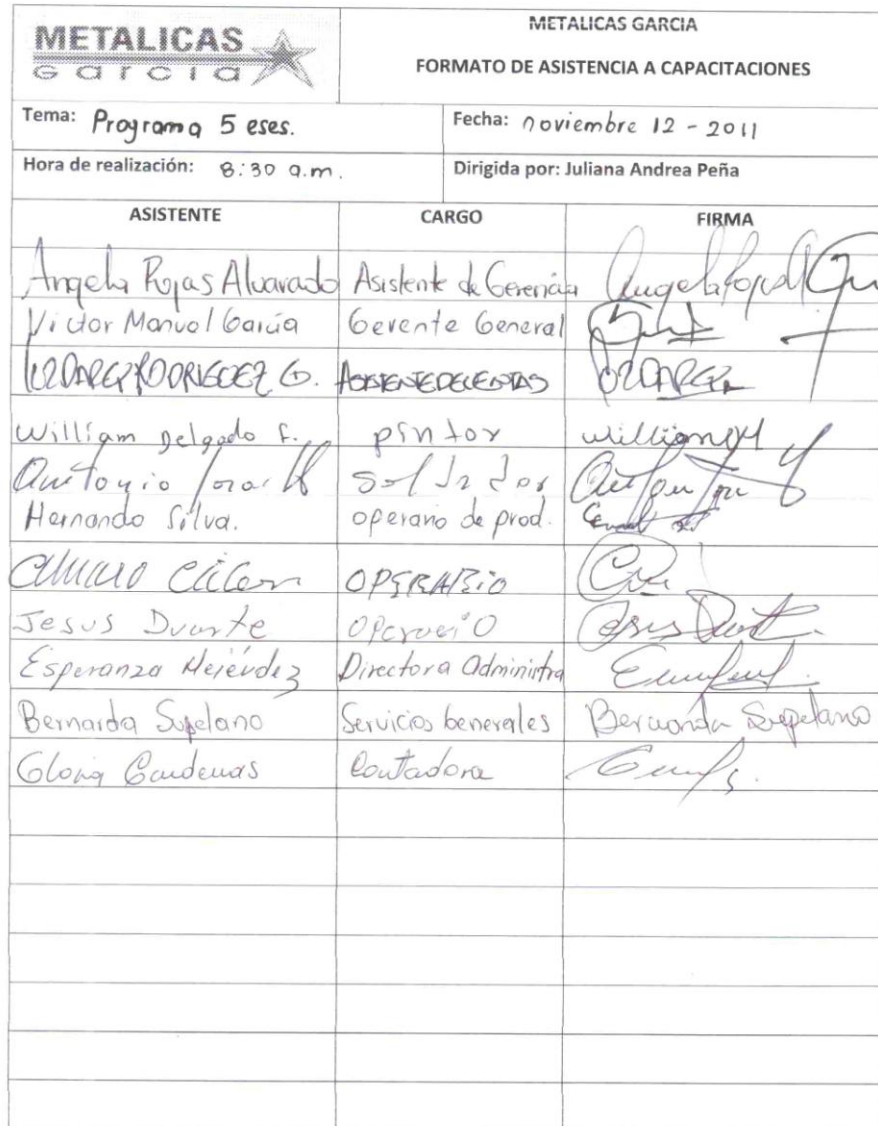 METALICAS
Garcia
METALICAS GARCIA
FORMATO DE ASISTENCIA A CAPACITACIONES
Tema: Programa 5 eses.
Fecha: noviembre 12 - 2011
Hora de realización: 8:30 a.m.
Dirigida por: Juliana Andrea Peña
ASISTENTE CARGO FIRMA
Angela Rojas Alvarado Asistente de Gerencia
Victor Manuel García Gerente General
RODRIGUEZ G.
William Delgado F. pintor William
Antonio Soldador
Hernando Silva. operario de prod.
OPERARIO
Jesus Duarte Operario Jesus Duarte
Esperanza Directora Administra
Bernarda Supelano Servicios Generales Bernarda Supelano
Gloria Cardenas Contadora